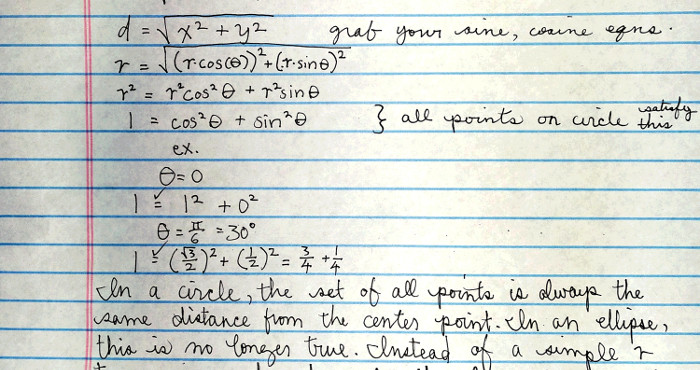 d = √(x² + y²) grab your sine, cosine eqns.
r = √((r·cos(θ))² + (r·sinθ)²)
r² = r²cos²θ + r²sinθ
1 = cos²θ + sin²θ } all points on circle satisfy this
ex.
θ=0
1 ≟ 1² + 0²
θ = π/6 = 30°
1 ≟ (√3/2)² + (1/2)² = 3/4 + 1/4
In a circle, the set of all points is always the
same distance from the center point. In an ellipse,
this is no longer true. Instead of a simple r